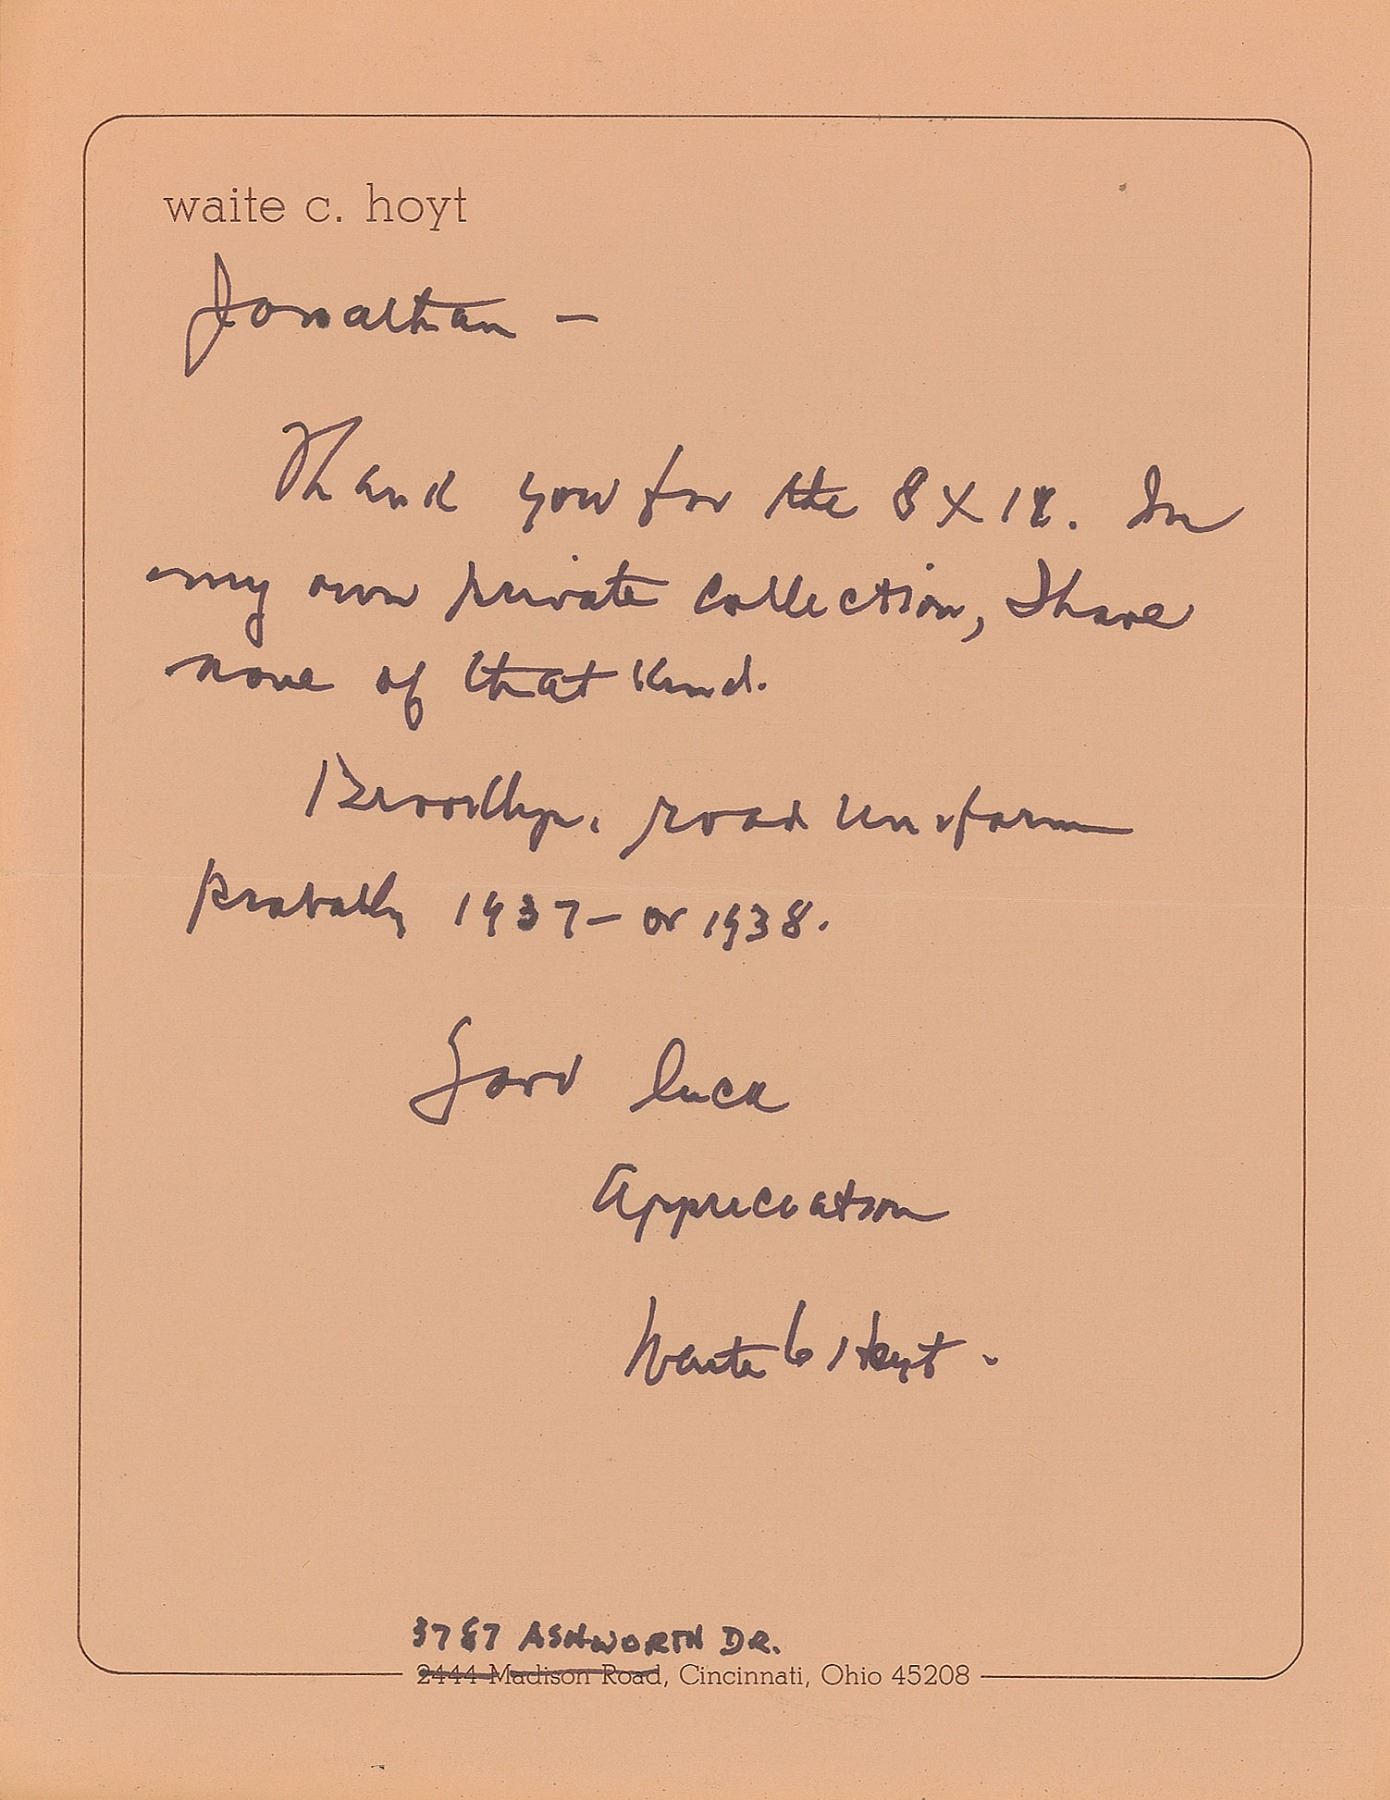 waite c. hoyt
Jonathan —
Thank you for the 8 X 10. In
my own private collection, I have
none of that kind.
Brooklyn. road uniform
probably 1937 — or 1938.
Good luck
Appreciation
Waite C Hoyt.
3787 ASHWORTH DR.
2444 Madison Road, Cincinnati, Ohio 45208